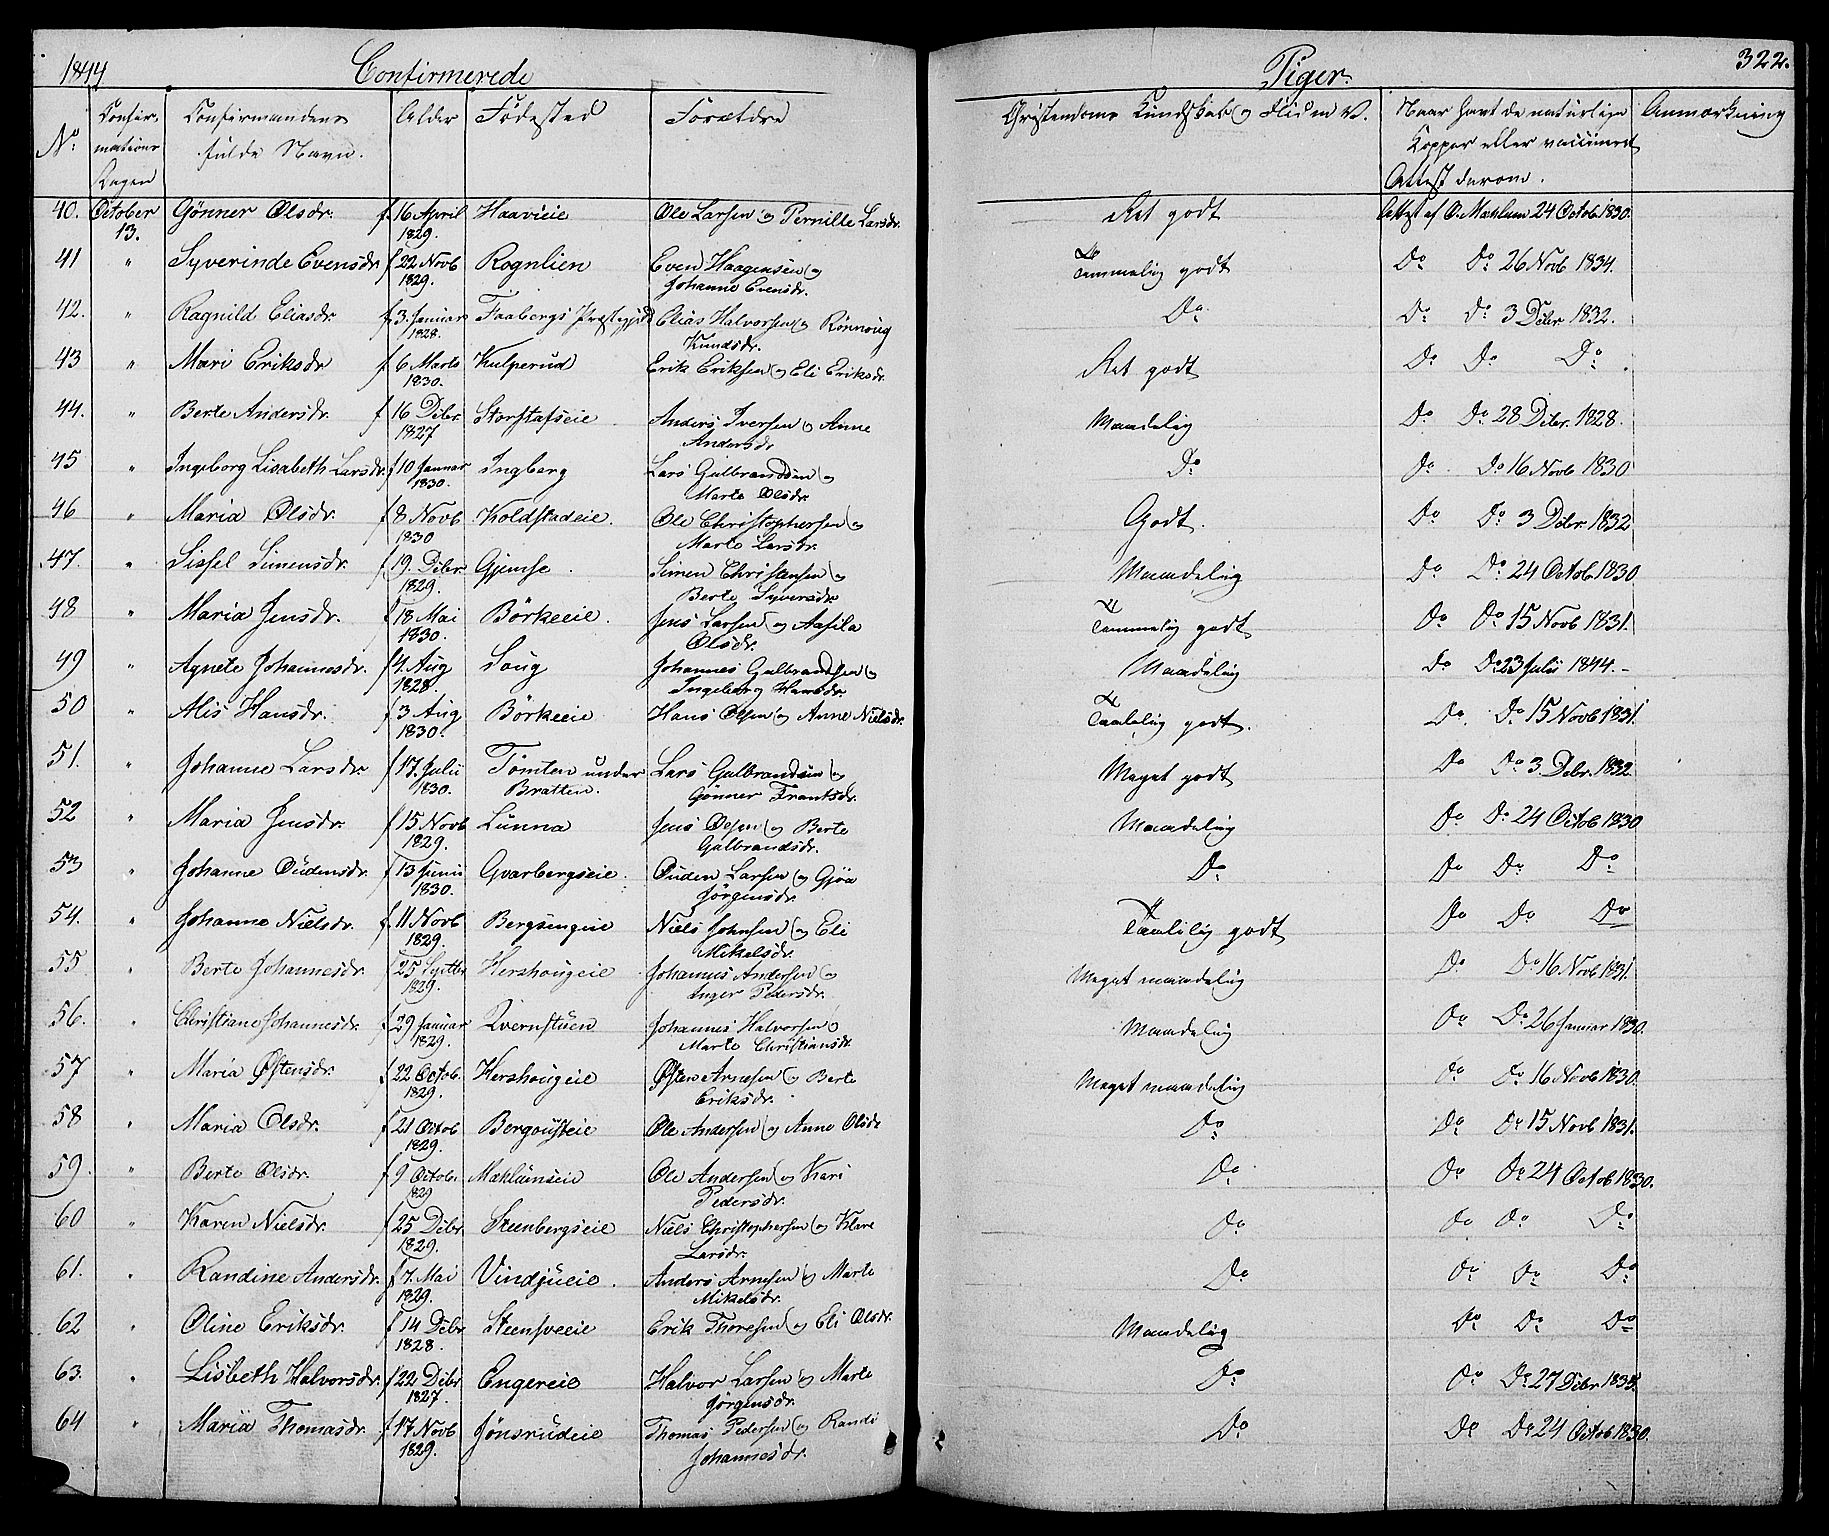 1844 Confirmerede Piger. 322.
No. Confirmations Dagen Confirmandens fulde Navn. Alder Fødested Forældre Christendoms Kundskab og Flid m. V. Naar havt de naturlige Kopper eller vaccineret Attest derom. Anmærkning
40. October 13. Gönner Olsdr. f. 16 April 1829. Haavieie Ole Larsen og Pernille Larsdr. Ret godt Attest af O. Mæhlum 24 Octob 1830.
41 " Syverinde Evensdr f 22 Novb 1829. Rognlien Even Haagensen og Johanne Evensdr. Temmelig godt Do Do 26 Novb 1834.
42. " Ragnild Eliasdr. f. 3. Januar 1828. Faabergs Præstegjeld Elias Halvorsen og Rønnoug Knudsdr. Do Do Do 3 Debr 1832.
43 " Mari Eriksdr f. 6 Marts 1830. Kulperud Erik Eriksen og Eli Eriksdr. Ret godt Do Do Do
44. " Berte Andersdr. f 16 Debr 1827 Storstafseie Anders Iversen og Anne Andersdr Maadelig Do Do 28 Debr. 1828.
45 " Ingeborg Lisabeth Larsdr. f 10 Januar 1830. Ingberg Lars Gulbrandsen og Marte Olsdr. Do Do Do 16 Novb 1830
46 " Maria Olsdr. f 8 Novb 1830 Koldstadeie. Ole Christophersen og Marte Larsdr. Godt. Do Do 3 Debr 1832
47. " Sissel Simensdr. f 19. Debr 1829. Gjemse. Simen Christiansen og Berte Syversdr Maadelig Do Do 24 Octob 1830
48 " Maria Jensdr. f 18 Mai 1830. Börkeeie. Jens Larsen og Aasila Olsdr. Temmelig godt Do Do 15 Novb 1831.
49 " Agnete Johannesdr. f 4. Aug 1828. Soug Johannes Gulbrandsen og Ingeborg Hansdr. Maadelig Do Do 23 Julii 1844.-
50 " Alis Hansdr. f 3 Aug 1830. Börkeeie Hans Olsen og Anne Nielsdr. Taalelig godt. Do Do 15 Novb 1831.
51. " Johanne Larsdr. f 17. Julii 1830. Tömten under Bratten. Lars Gulbrandsen og Gönner Frantsdr. Meget godt Do Do 3. Debr. 1832
52 " Maria Jensdr. f 15 Novb 1829. Lunna Jens Olsen og Berte Gulbrandsdr. Maadelig Do Do 24 Octob 1830
53 " Johanne Oudensdr. f 13 Junii 1830. Gvarbergseie. Ouden Larsen og Gjöa Jörgensdr. Do Do Do Do
54. " Johanne Nielsdr. f. 11 Novb 1829. Bergsengeie Niels Johnsen og Eli Mikelsdr. Taalelig godt Do Do Do
55 " Berte Johannesdr. f 25 Septbr 1829. Hershougeie Johannes Andersen og Inger Pedersdr. Meget maadelig Do Do 16 Novb 1831.
56. " Christiane Johannesdr. f 29 Januar 1829. Qvernstuen Johannes Halvorsen og Marte Christiansdr. Maadelig Do Do 26 Januar 1830.
57 " Maria Østensdr. f 22 Octob. 1829. Hershougeie Østen Arnesen og Berte Eriksdr. Meget maadelig Do Do 16 Novb 1830.
58 " Maria Olsdr. f 21 Octob 1829. Bergousteie Ole Andersen og Anne Olsdr Do Do Do 15 Novb 1831.
59. " Berte Olsdr. f 9 Octob. 1829 Mæhlumseie Ole Andersen og Kari Pedersdr. Do Do Do 24 Octob 1830.
60 " Karen Nielsdr. f 25 Debr 1829. Steenbergseie Niels Christophersen og Klare Larsdr. Do Do Do Do
61. " Randine Andersdr. f 7. Mai 1829. Vindjueie. Anders Arnesen og Marte Mikelsdr. Do Do Do Do
62 " Oline Eriksdr. f 14 Debr 1828. Steensveeie Erik Thoresen og Eli Olsdr. Maadelig Do Do Do
63. " Lisbeth Halvorsdr. f 22 Debr 1827. Engereie Halvor Larsen og Marte Jörgensdr. Do Do Do 27 Debr 1835.
64 " Maria Thomasdr. f 17 Novb 1829. Jönsrudeie Thomas Pedersen og Randi Johannesdr. Do Do Do 24 Octob 1830.